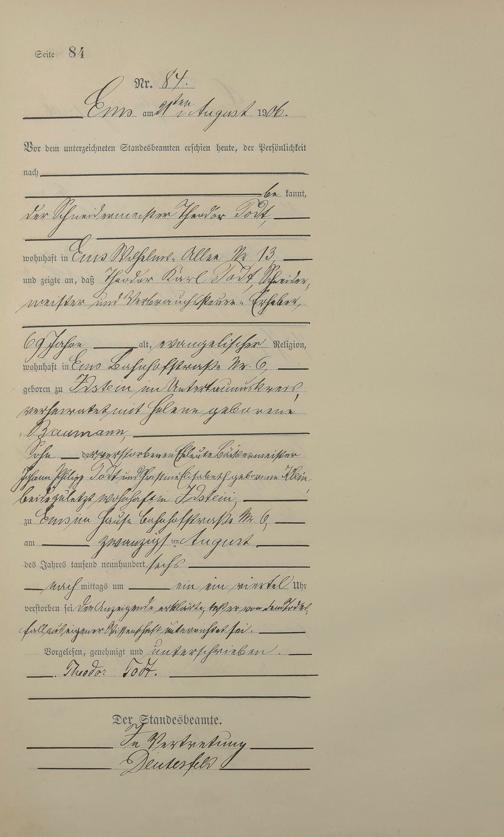 Seite 84
Nr. 84.
Ems am 21ten August 1906.
Vor dem unterzeichneten Standesbeamten erschien heute, der Persönlichkeit
nach
be kannt,
der Schneidermeister Theodor Todt,
wohnhaft in Ems Wilhelms-Allee Nr 13,
und zeigte an, daß Theodor Karl Todt, Schneider-
meister und Verbrauchssteuer-Erheber,
69 Jahre alt, evangelischer Religion,
wohnhaft in Ems Bahnhofstraße Nr. 6,
geboren zu Idstein im Untertaunuskreis,
verheiratet mit Helene geborene
Baumann,
Sohn der verstorbenen Eheleute Bäckermeister
Johann Philipp Todt und geborene
beide zuletzt wohnhaft in Idstein,
zu Ems im Hause Bahnhofstraße Nr. 6,
am zwanzigsten August
des Jahres tausend neunhundert sechs
nach mittags um ein ein viertel Uhr
verstorben sei. Der Anzeigende erklärte, daß er von dem Todes-
fall aus eigener Wissenschaft unterrichtet sei.
Vorgelesen, genehmigt und unterschrieben.
Theodor Todt.
Der Standesbeamte.
In Vertretung